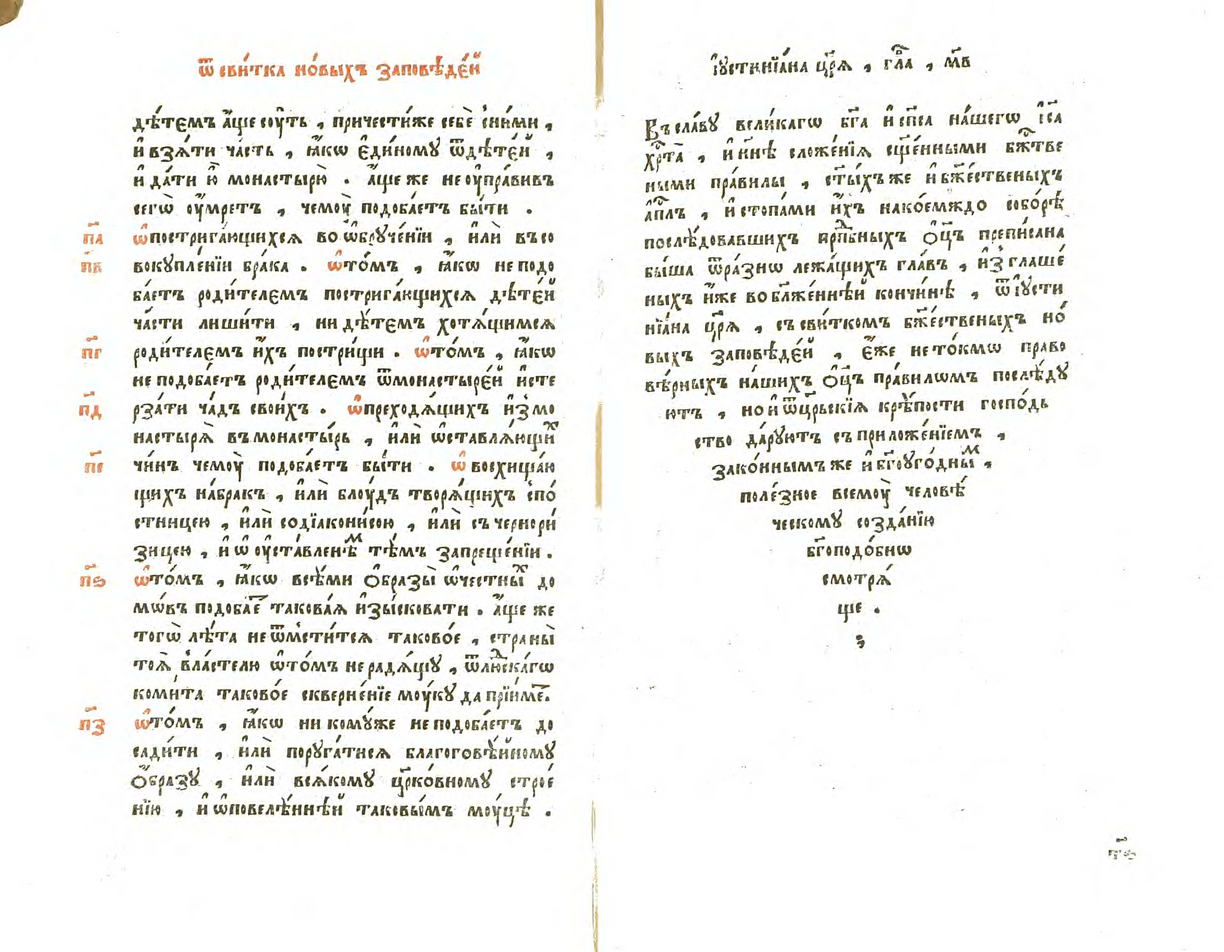 ѿ сви́тка но́выхъ заповѣде́й
дѣ́темъ а҆́ще сꙋ́ть , причести́же себѐ сни́ми ,
и҆ взѧ́ти ча́сть , ꙗ҆́кѡ є҆ди́ному ѿдѣте́й ,
и҆ да́ти ю҆̀ монастырю̀ . а҆́ще же неᲂу҆пра́вивъ
сегѡ̀ ᲂу҆́мретъ , чемоу̀ подоба́етъ бы́ти .
п҃а ѡ҆постриза́ющихсѧ во ѡ҆брꙋче́нїи , и҆лѝ въ со
п҃в вокꙋпле́нїи бра́ка . ѡ҆то́мъ , ꙗ҆́кѡ не подо
ба́етъ роди́телемъ постриза́ющихсѧ дѣте́й
ча́сти лиши́ти , ни дѣ́темъ хотѧ́щимсѧ
п҃г роди́телемъ и҆́хъ пострищи́ . ѡ҆то́мъ , ꙗ҆́кѡ
не подоба́етъ роди́телемъ ѿмонастыре́й и҆сте
п҃д рза́ти ча́дъ свои́хъ . ѡ҆преходѧ́щихъ и҆змо
настырѧ̀ въ монасты́рь , и҆лѝ ѡ҆ставлѧ́ющиⷯ
п҃е чи́нъ чемоу̀ подоба́етъ бы́ти . ѡ҆ восхища́ю
щихъ на́бракъ , и҆лѝ блоу́дъ творѧ́щихъ спо́
стницею , и҆лѝ содїа́конисою , и҆лѝ съ черно́ри
зицею , и҆ ѡ҆ ᲂу҆ста́вленѣⷨ тѣ́мъ запреще́нїи .
п҃ѕ ѡ҆то́мъ , ꙗ҆́кѡ всѣ́ми ѻ҆́бразы ѡ҆че́стныⷯ до
мѡ́въ подоба́еⷮ такова́ѧ и҆зы́сковати . а҆́ще же
тогѡ̀ лѣ́та не ѿмсти́тсѧ таково́е , страны̀
тоѧ̀ вла́стелю ѡ҆то́мъ не радѧ́щꙋ , ѿлю́дска́гѡ
коми́та таково́е скверне́нїе моу́кꙋ да прїи́меⷮ .
п҃з ѡ҆то́мъ , ꙗ҆́кѡ ни комꙋ́же не подоба́етъ до
сади́ти , и҆лѝ порꙋга́тисѧ благоговѣ́йномꙋ
ѻ҆́бразꙋ , и҆лѝ всѧ́комꙋ цр҃ко́вномꙋ строе́
нїю , и҆ ѡ҆повелѣ́ннѣй таковы́мъ моу́цѣ .
і҆ꙋстинїа́на цр҃ѧ̀ , гл҃а , м҃в
Въ сла́вꙋ вели́кагѡ бг҃а и҆ сп҃са на́шегѡ і҆с҃а
хрⷭ҇та̀ , и҆ ны́нѣ сложе́нїѧ сщ҃е́нными бж҃тве
ными пра́вилы , ст҃ы́хъ же и҆ бж҃е́ственыхъ
а҆п҃лъ , и҆ стопа́ми и҆́хъ на кое́мждо собо́рѣ
послѣ́довавшихъ прпⷣбныхъ ѻ҆ц҃ъ преписана
бы́ша ѿра́знѡ лежа́щихъ гла́въ , и҆з глаше́
ныхъ и҆́же во бл҃же́ннѣй кончи́нѣ , ѿ і҆ꙋсти
нїа́на цр҃ѧ̀ , съ сви́ткомъ бж҃е́ственыхъ но́
выхъ заповѣде́й , є҆́же не то́кмѡ право
вѣ́рныхъ на́шихъ ѻ҆ц҃ъ пра́вилѡмъ послѣ́дꙋ
ютъ , но и҆ ѿца́рьскїѧ крѣ́пости госпо́дь
ство да́рꙋютъ съ приложе́нїемъ ,
зако́ннымъ же и҆ бг҃оᲂуго́дныⷨ ,
поле́зное всемоу̀ человѣ́
ческомꙋ созда́нїю
бг҃оподо́бнѡ
смотрѧ́
ще .